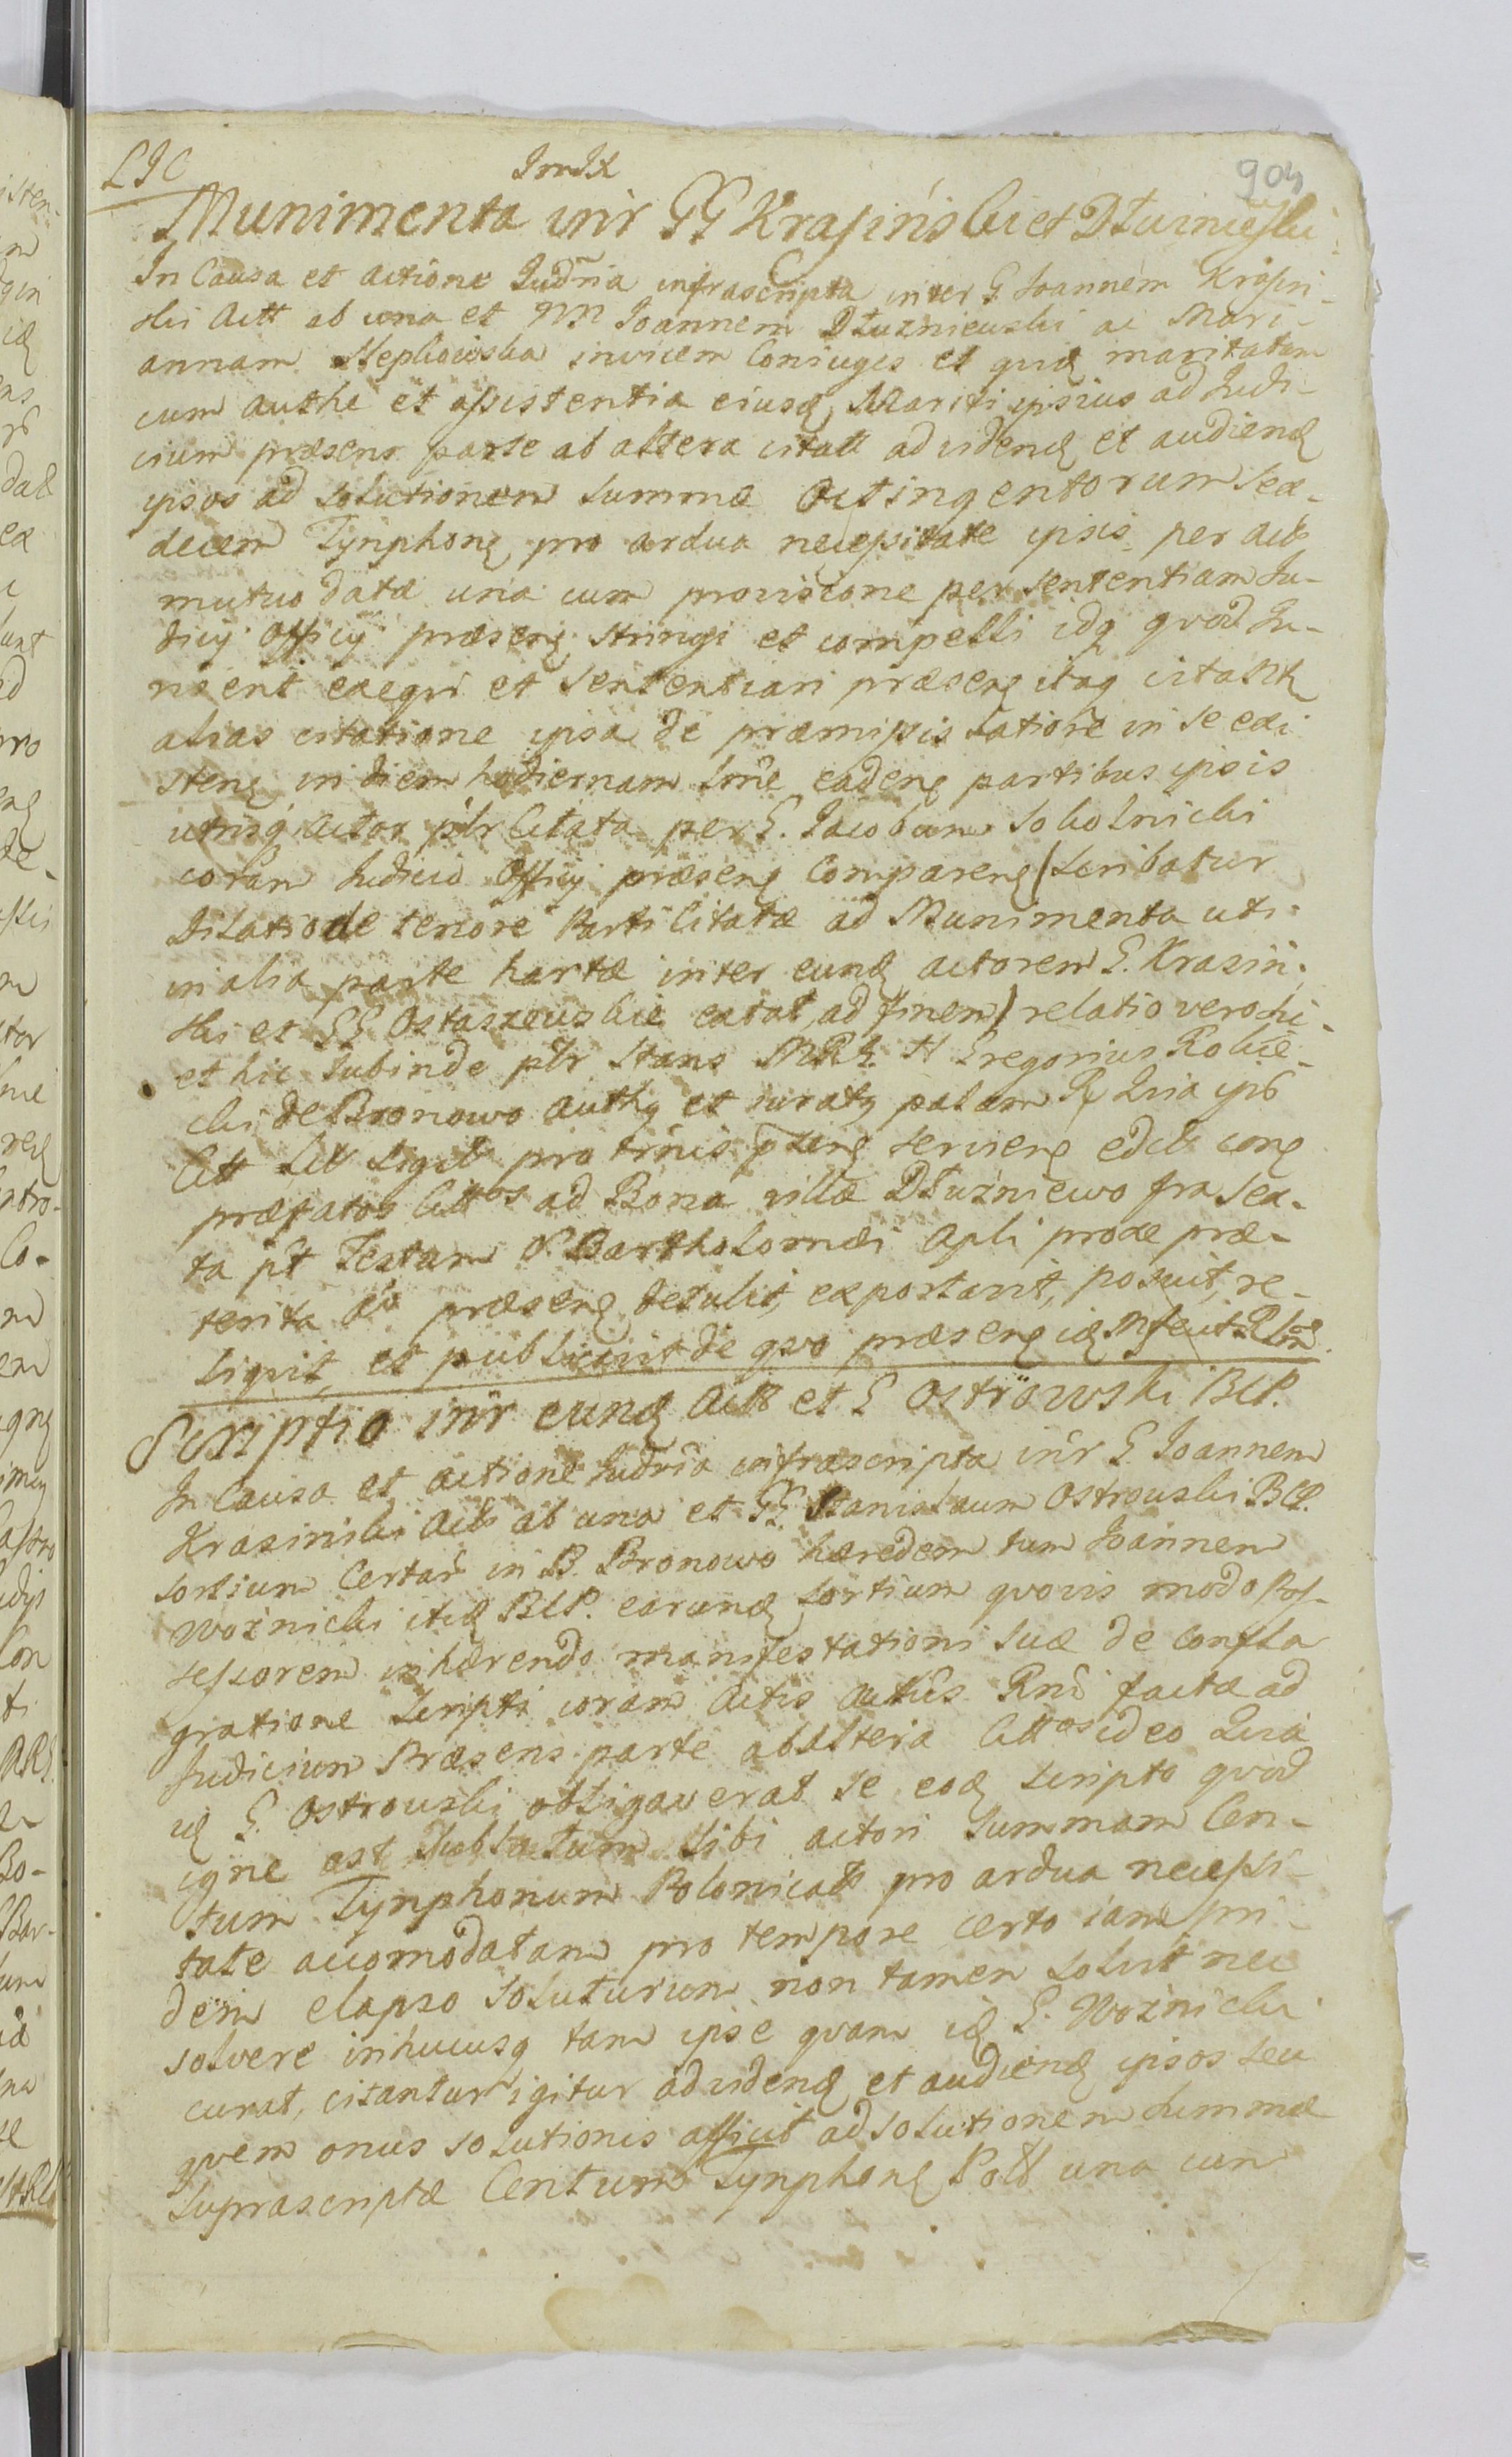 LIC
904
Munimenta inir GG Krasińskiet Dłuzniewski
In Causa et actione Judria infrascripta inter G. Joannem Krasin-
ski Actt ab una et NN Joannem Dłuzniewski ac Mari-
annam invicem Coniuges et quid maritatam
cum authe et assistentia eiusd Mariti ipsius ad Judi-
cium præsens parte ab altera citatt ad vidend et audiend
ipsos ad solutionem summæ Octingentorum sex-
decem Tynphon pro ardua necessitate ipsis per Act
mutuo datæ una cum provisione per sententiam Ju-
dicy Officy præsen stringi et compelli idq quod Ju-
ris erit exeqvi et sententiari præsen itaq
alias citatione ipsa de præmissis latiore in se exi
sten in diem hodiernam eaden partibus ipsis
utrisq Actor pttr Citata per G. Jacobum Sokolnicki
coram Judicio Officy præsen Comparen (scribatur
Dilatio de tenore Parti Citatæ ad Munimenta uti
in alia parte hartæ inter eund actorem G. Krasin-
ski et GG Ostaszewskie ad finem) relatio vero
et hic subinde pttr stans Gregorius
cki de Bronowo auth et iurat palam Quia ips
pro serviens
præfatos Citt os ad Bona villæ Dłuzniewo fra sex-
ta pt Festum S Bartholomæi Apli proxe præ-
terita præsen detulit, exportavit, posuit, re-
liqvit, et publicavit de qvo præsen
Scriptio inir eund Actt et G Ostrowski BCP.
In Causa et actione Judria infrascripta inir G. Joannem
Krasinski Act ab una et GG Stanislaum Ostrowski BCP.
sortium Certar in B. Bronowo hæredem tum Joannem
Wożnicki itid BCP. earund sortium qvovis modo Pos-
sessorem inhærendo manifestationi suæ de confla
gratione scripti coram Actis factæ ad
Judicium Præsens parte ab altera Citt os ideo Quia
id G. Ostrowski obligaverat se eod scripto qvod
igne est sublatum sibi actori summam Cen-
tum Tynphonum Polonicatt pro ardua necessi-
tate accomodatam pro tempore certo iam pri-
dem elapso soluturum non tamen solvit nec
solvere inhucusq tam ipse qvam id G. Wożnicki
curat, citantur igitur ad videnđ et audiend ipsos seu
qvem onus solutionis afficit ad solutionem summæ
suprascriptæ Centum Tynphon Patt una cum